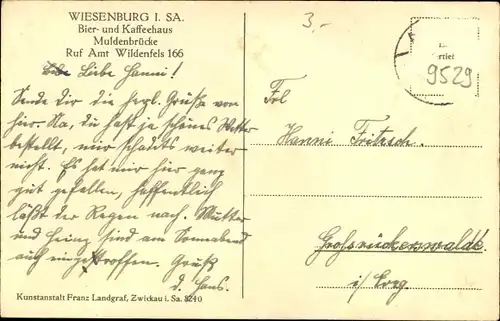 WIESENBURG I. SA.
Bier- und Kaffeehaus
Muldenbrücke
Ruf Amt Wildenfels 166
3,-
9529
Liebe Hanni!
Sende dir die hrzl. Grüße von
hier. Na, du hast ja schönes Wetter
bestellt, nur schade weiter
nicht. Es hat mir hier ganz
gut gefallen, hoffentlich
läßt der Regen nach. Mutter
und Heinz sind am Sonnabend
auch eingetroffen. Gruß
d. Hans.
Frl
Hanni Fritzsch.
Großrückerswalde
i/Erzg.
Kunstanstalt Franz Landgraf, Zwickau i. Sa. 8240